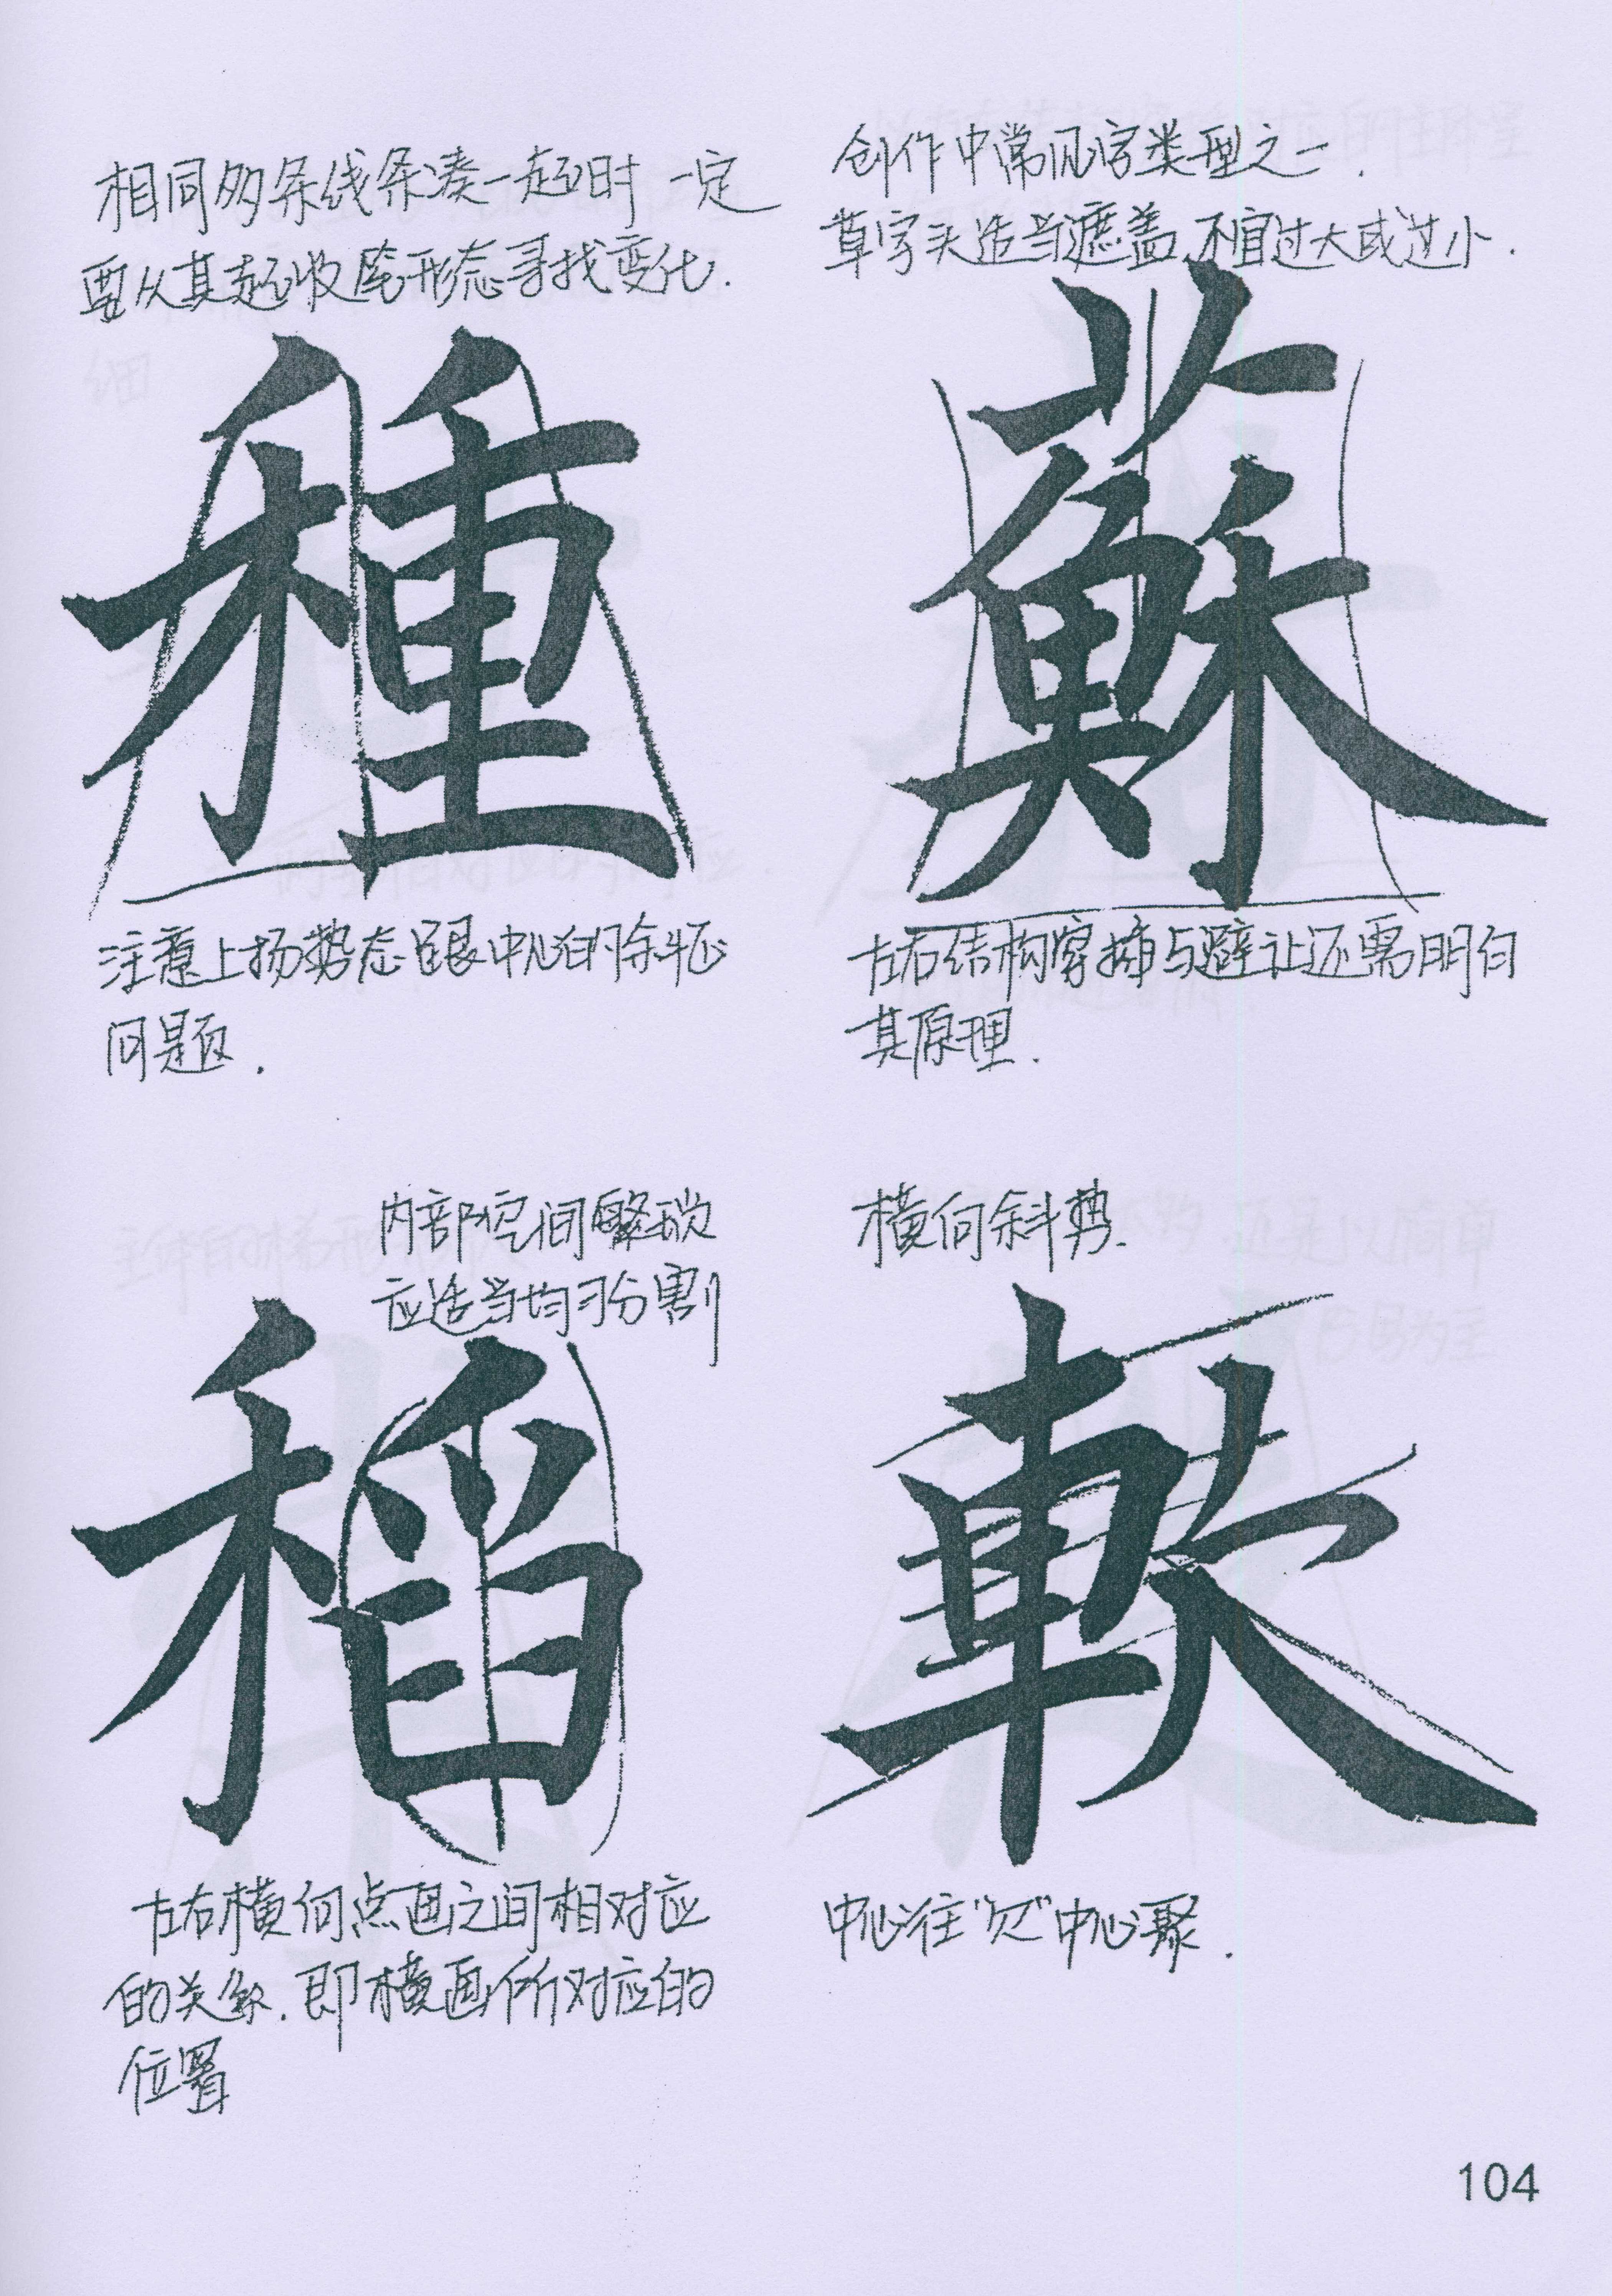 相同多条线条凑一起时 一定
要从其起收笔形态寻找变化.
種
注意上扬势态跟中心的
问题.
创作中常见字类型之一.
草字头适当遮盖,不宜过大或过小.
蘇
左右结构穿插与避让还需明白
其原理.
内部空间繁琐
应适当均匀分割
稻
左右横向点画之间相对应
的关系.即横画所对应的
位置
横向斜势.
軟
中心往“欠”中心聚.
104